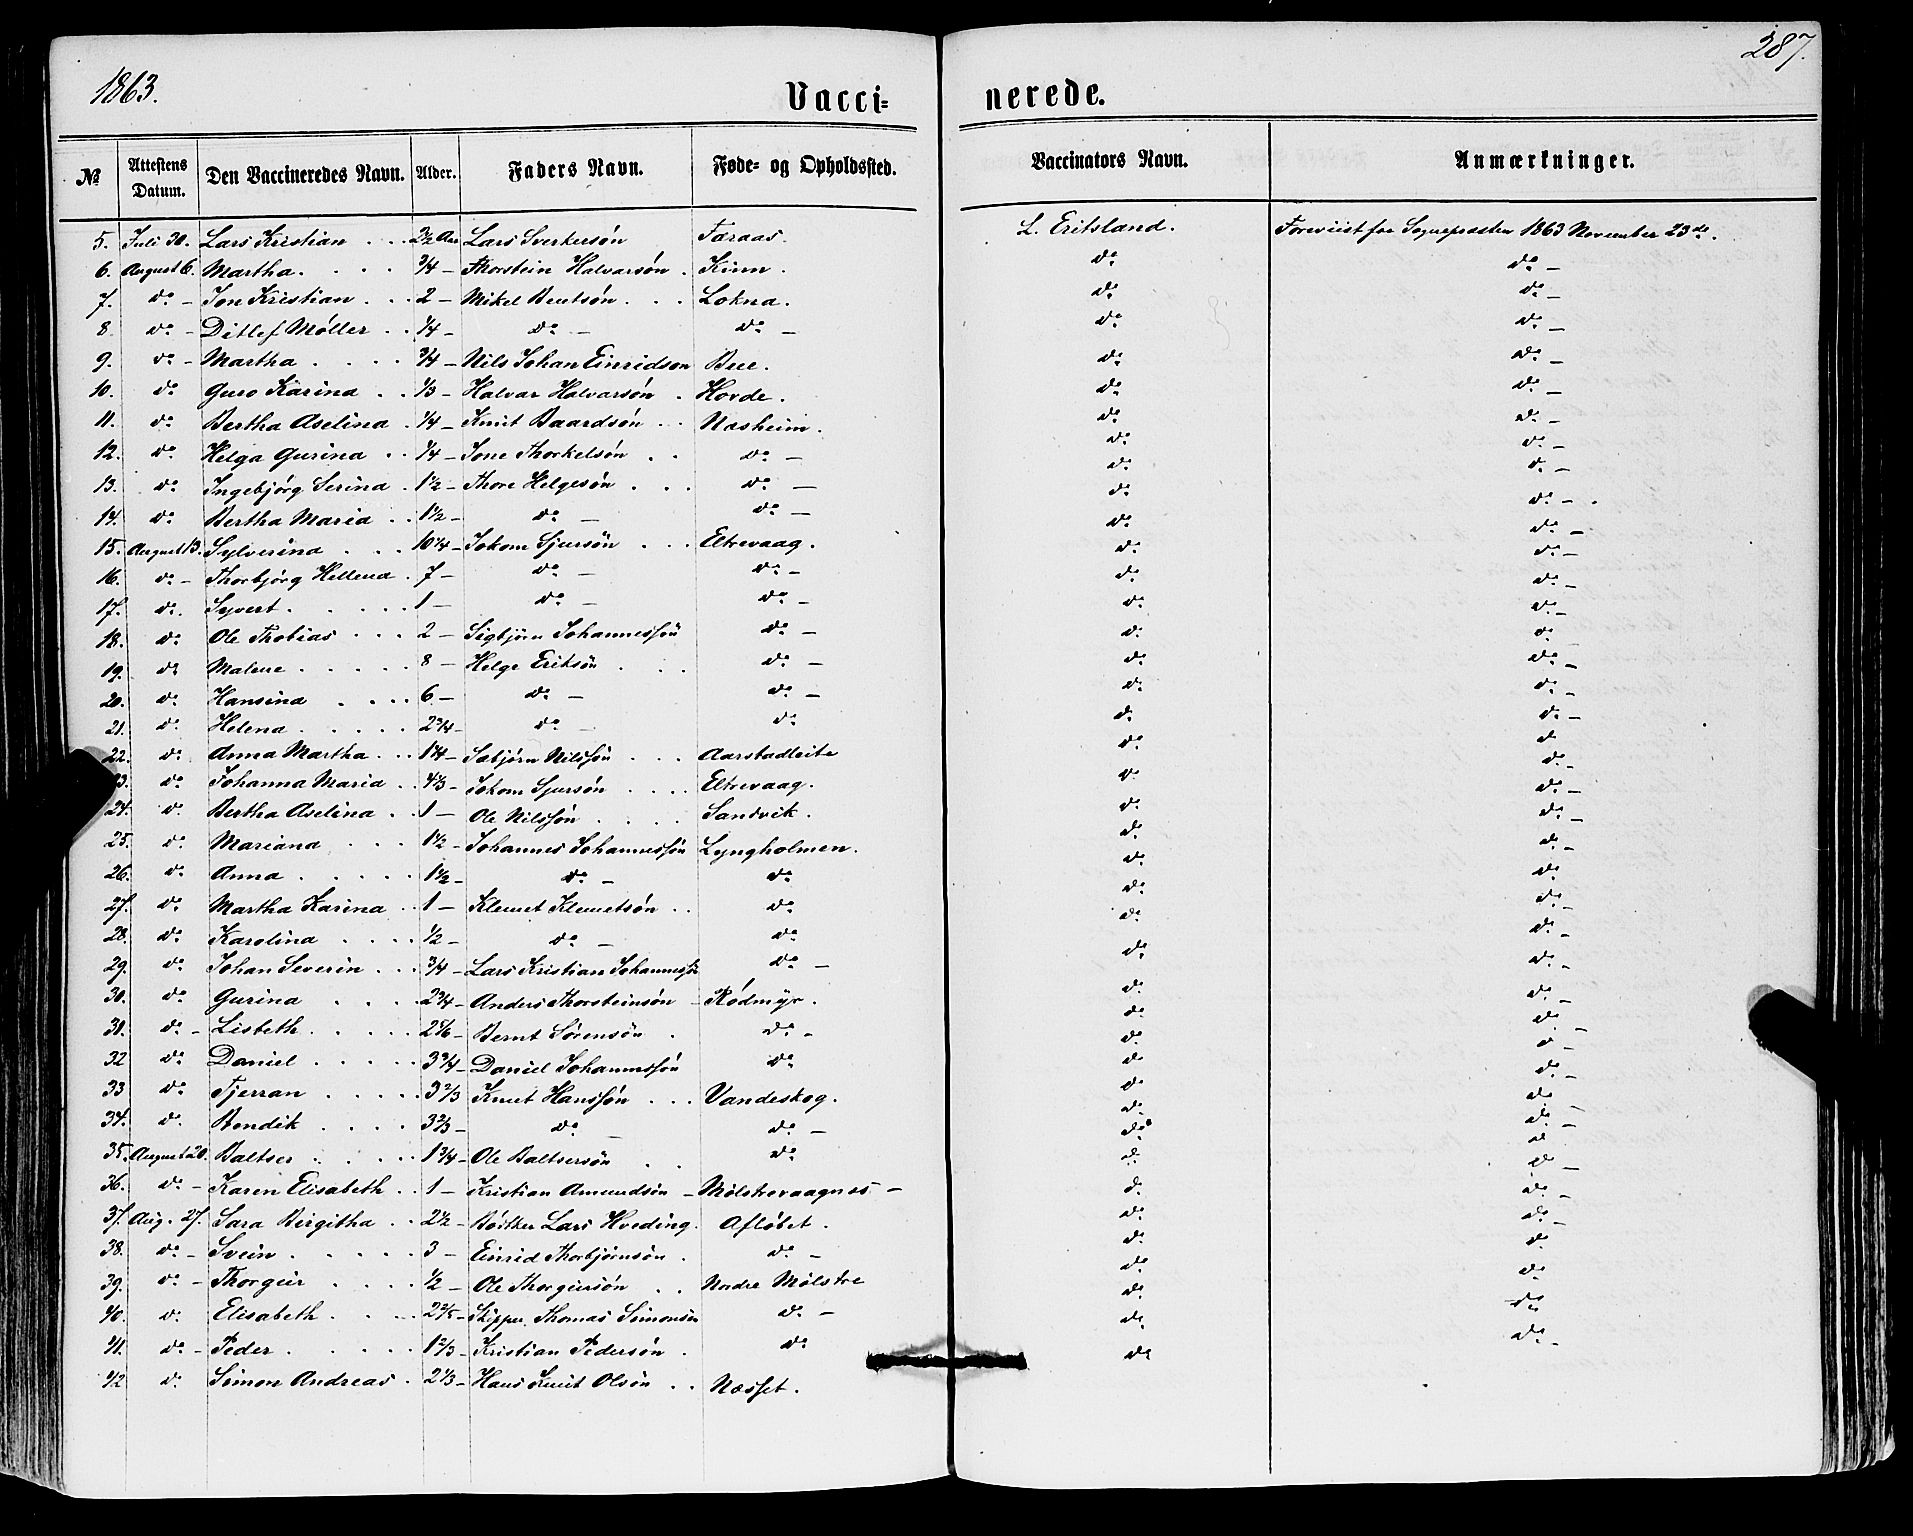 1863.
Vacci= nerede.
287.
No Attestens Datum. Den Vaccineredes Navn. Alder. Faders Navn. Føde- og Opholdssted. Vaccinators Navn. Anmærkninger.
5. Juli 30. Lars Kristian 2½ Aar Lars Sverkersøn Faraas. L. Eritsland. Foreviist for Sognepresten 1863 November 23de.
6. August 6. Martha. ¾ - Thorstein Halvarsøn. Kinn. do do -
7. do - Jon Kristian 2 - Mikel Bentsøn Lokna. do do -
8. do - Ditlef Møller ¼ - do - do - do do -
9. do - Martha ¾ - Nils Johan Einridson Bue. do do -
10. do Guro Karina ⅓ - Halvar Halvarsøn Hovde. do do -
11. do Bertha Aselina ¼ - Knut Baardsøn Nasheim. do do -
12. do Helga Gurina ¼ - Jone Thorkelsøn do - do do -
13. do Ingebjørg Serina 1½ - Thore Helgesøn do - do do -
14. do Bertha Maria 1½ - do - do - do do -
15. August 13. Sylverina 10¼ - Jokom Sjursøn Eltrevaag. do do -
16. do - Thorbjørg Hellena 7 - do - do - do do -
17. do. Syvert 1 - do - do - do do -
18. do Ole Thobias 2 - Sigbjørn Johannessøn do - do do -
19. do Malene 8 - Helge Eriksøn do - do do
20. do Hansina 6 - do - do - do do -
21. do Helena 2¾ - do - do do do -
22. do Anna Martha 1¼ - Sabjørn Nilssøn Aarstadleite do do -
23. do Johanna Maria 4⅓ - Jokom Sjursøn Eltrevaag. do do
24. do Bertha Aselina 1 - Ole Nilssøn Sandvik. do do -
25. do Mariana 1½ - Johannes Johannessøn Lyngholmen. do do -
26. do Anna 1½ - do - do do do -
27. do Martha Karina 1 - Klemet Klemetsøn do do do -
28. do Karolina ½ - do - do do do
29. do Johan Severin ¾ - Lars Kristian Johannessøn do - do do -
30. do Gurina 2¾ - Anders Thorsteinsøn - Rødmyr. do do -
31. do - Lisbeth. 2⅚ - Bernt Sørensøn do - do do -
32 do Daniel 3¾ - Daniel Johannessøn do do do -
33 do Tjerran 3⅔ Knut Hanssøn Vandeskog. do do -
34. do Bendik 3⅔ - do - do - do do -
35. August 20. Baltser 1¾ - Ole Baltsersøn do do do -
36. do - Karen Elisabeth 1 - Kristian Amundsøn - Mølstrevaagnes - do do -
37. Aug. 27. Sara Birgitha 2½ - Bødker Lars Hveding. Afløbet. do do -
38. do - Svein 3 - Einrid Thorbjørnsøn do - do do
39. do - Thorgeir ½ - Ole Thorgeirsøn Nedre Mølstre do do
40. do Elisabeth 2⅖ - Skipper Thomas Simonsen do - do do
41. do - Peder 1⅔ - Kristian Pedersøn do do do -
42 do Simon Andreas 2⅓ - Hans Knut Olsøn Næsset. do